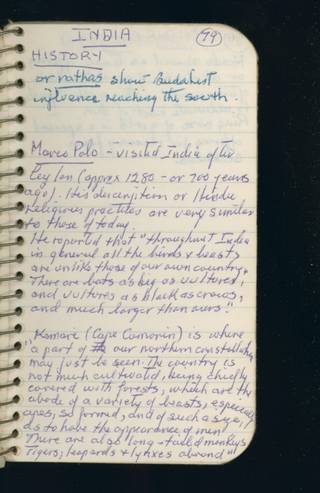 INDIA
79
HISTORY
or rathas show Buddhist
influence reaching the south.
Marco Polo - visited India after
Ceylon (approx 1280 - or 700 years
ago). His description of Hindu
religious practices are very similar
to those of today.
He reported that "throughout India
in general all the birds & beasts
are unlike those of our own country.
There are bats as big as vultures,
and vultures as black as crows,
and much larger than ours."
"Komari (Cape Comorin) is where
a part of our northern constellation
may just be seen. The country is
not much cultivated, being chiefly
covered with forests, which are the
abode of a variety of beasts, especially
apes, so formed, and of such a size,
as to have the appearance of men.
There are also long-tailed monkeys
Tigers, leopards & lynxes abound"